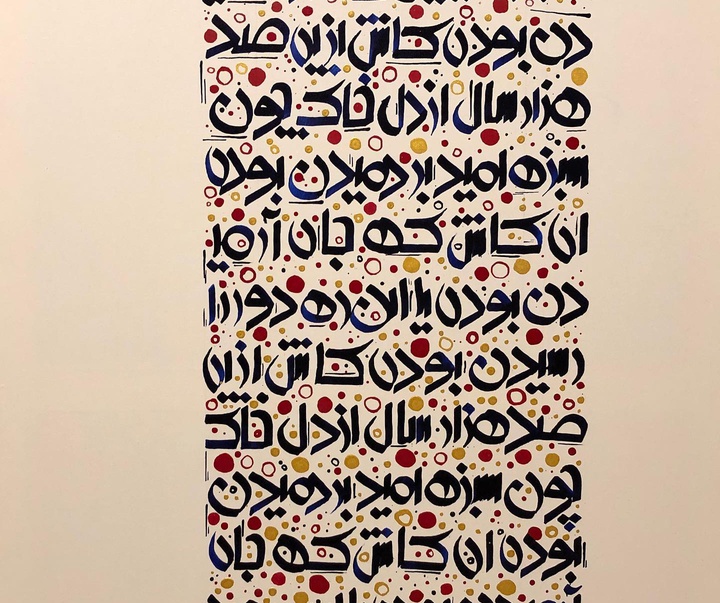 دن بودی کاش از پی صد
هزار سال از دل خاک چون
سبزه امید بر دمیدن بودی
ای کاش که جای آرمی
دن بودی یا این ره دور را
رسیدن بودی کاش از پی
صد هزار سال از دل خاک
چون سبزه امید بر دمیدن
بودی ای کاش که جای